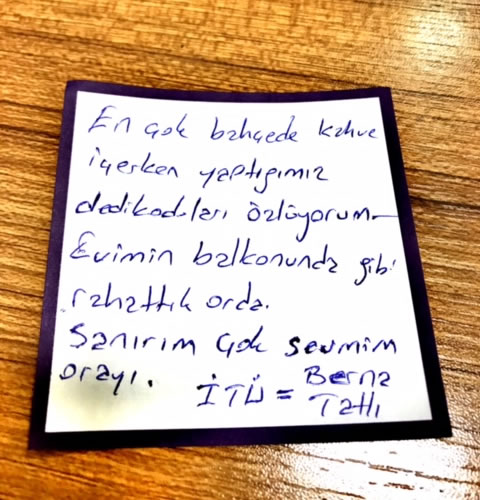 En çok bahçede kahve
içerken yaptığımız
dedikoduları özlüyorum.
Evimin balkonunda gibi
rahattık orda.
Sanırım çok sevmim
orayı.
İTÜ = Berna
Tatlı